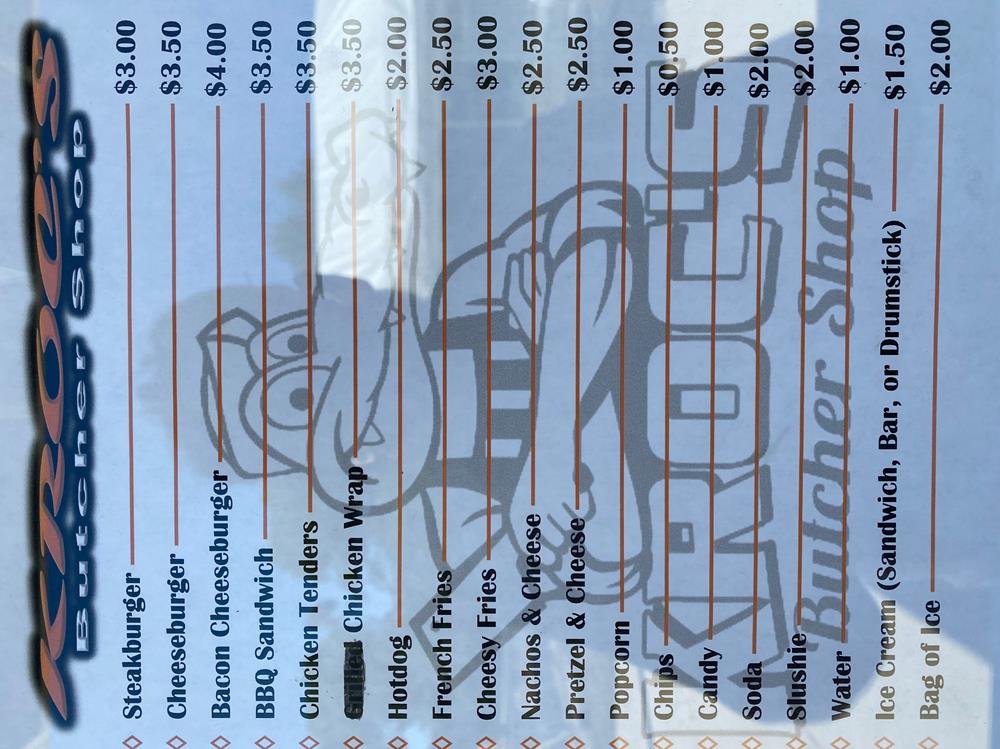 KROC'S
Butcher Shop
Steakburger $3.00
Cheeseburger $3.50
Bacon Cheeseburger $4.00
BBQ Sandwich $3.50
Chicken Tenders $3.50
Chicken Wrap $3.50
Hotdog $2.00
French Fries $2.50
Cheesy Fries $3.00
Nachos & Cheese $2.50
Pretzel & Cheese $2.50
Popcorn $1.00
Chips $0.50
Candy $1.00
Soda $2.00
Slushie $2.00
Water $1.00
Ice Cream (Sandwich, Bar, or Drumstick) $1.50
Bag of Ice $2.00
KROC'S
Butcher Shop